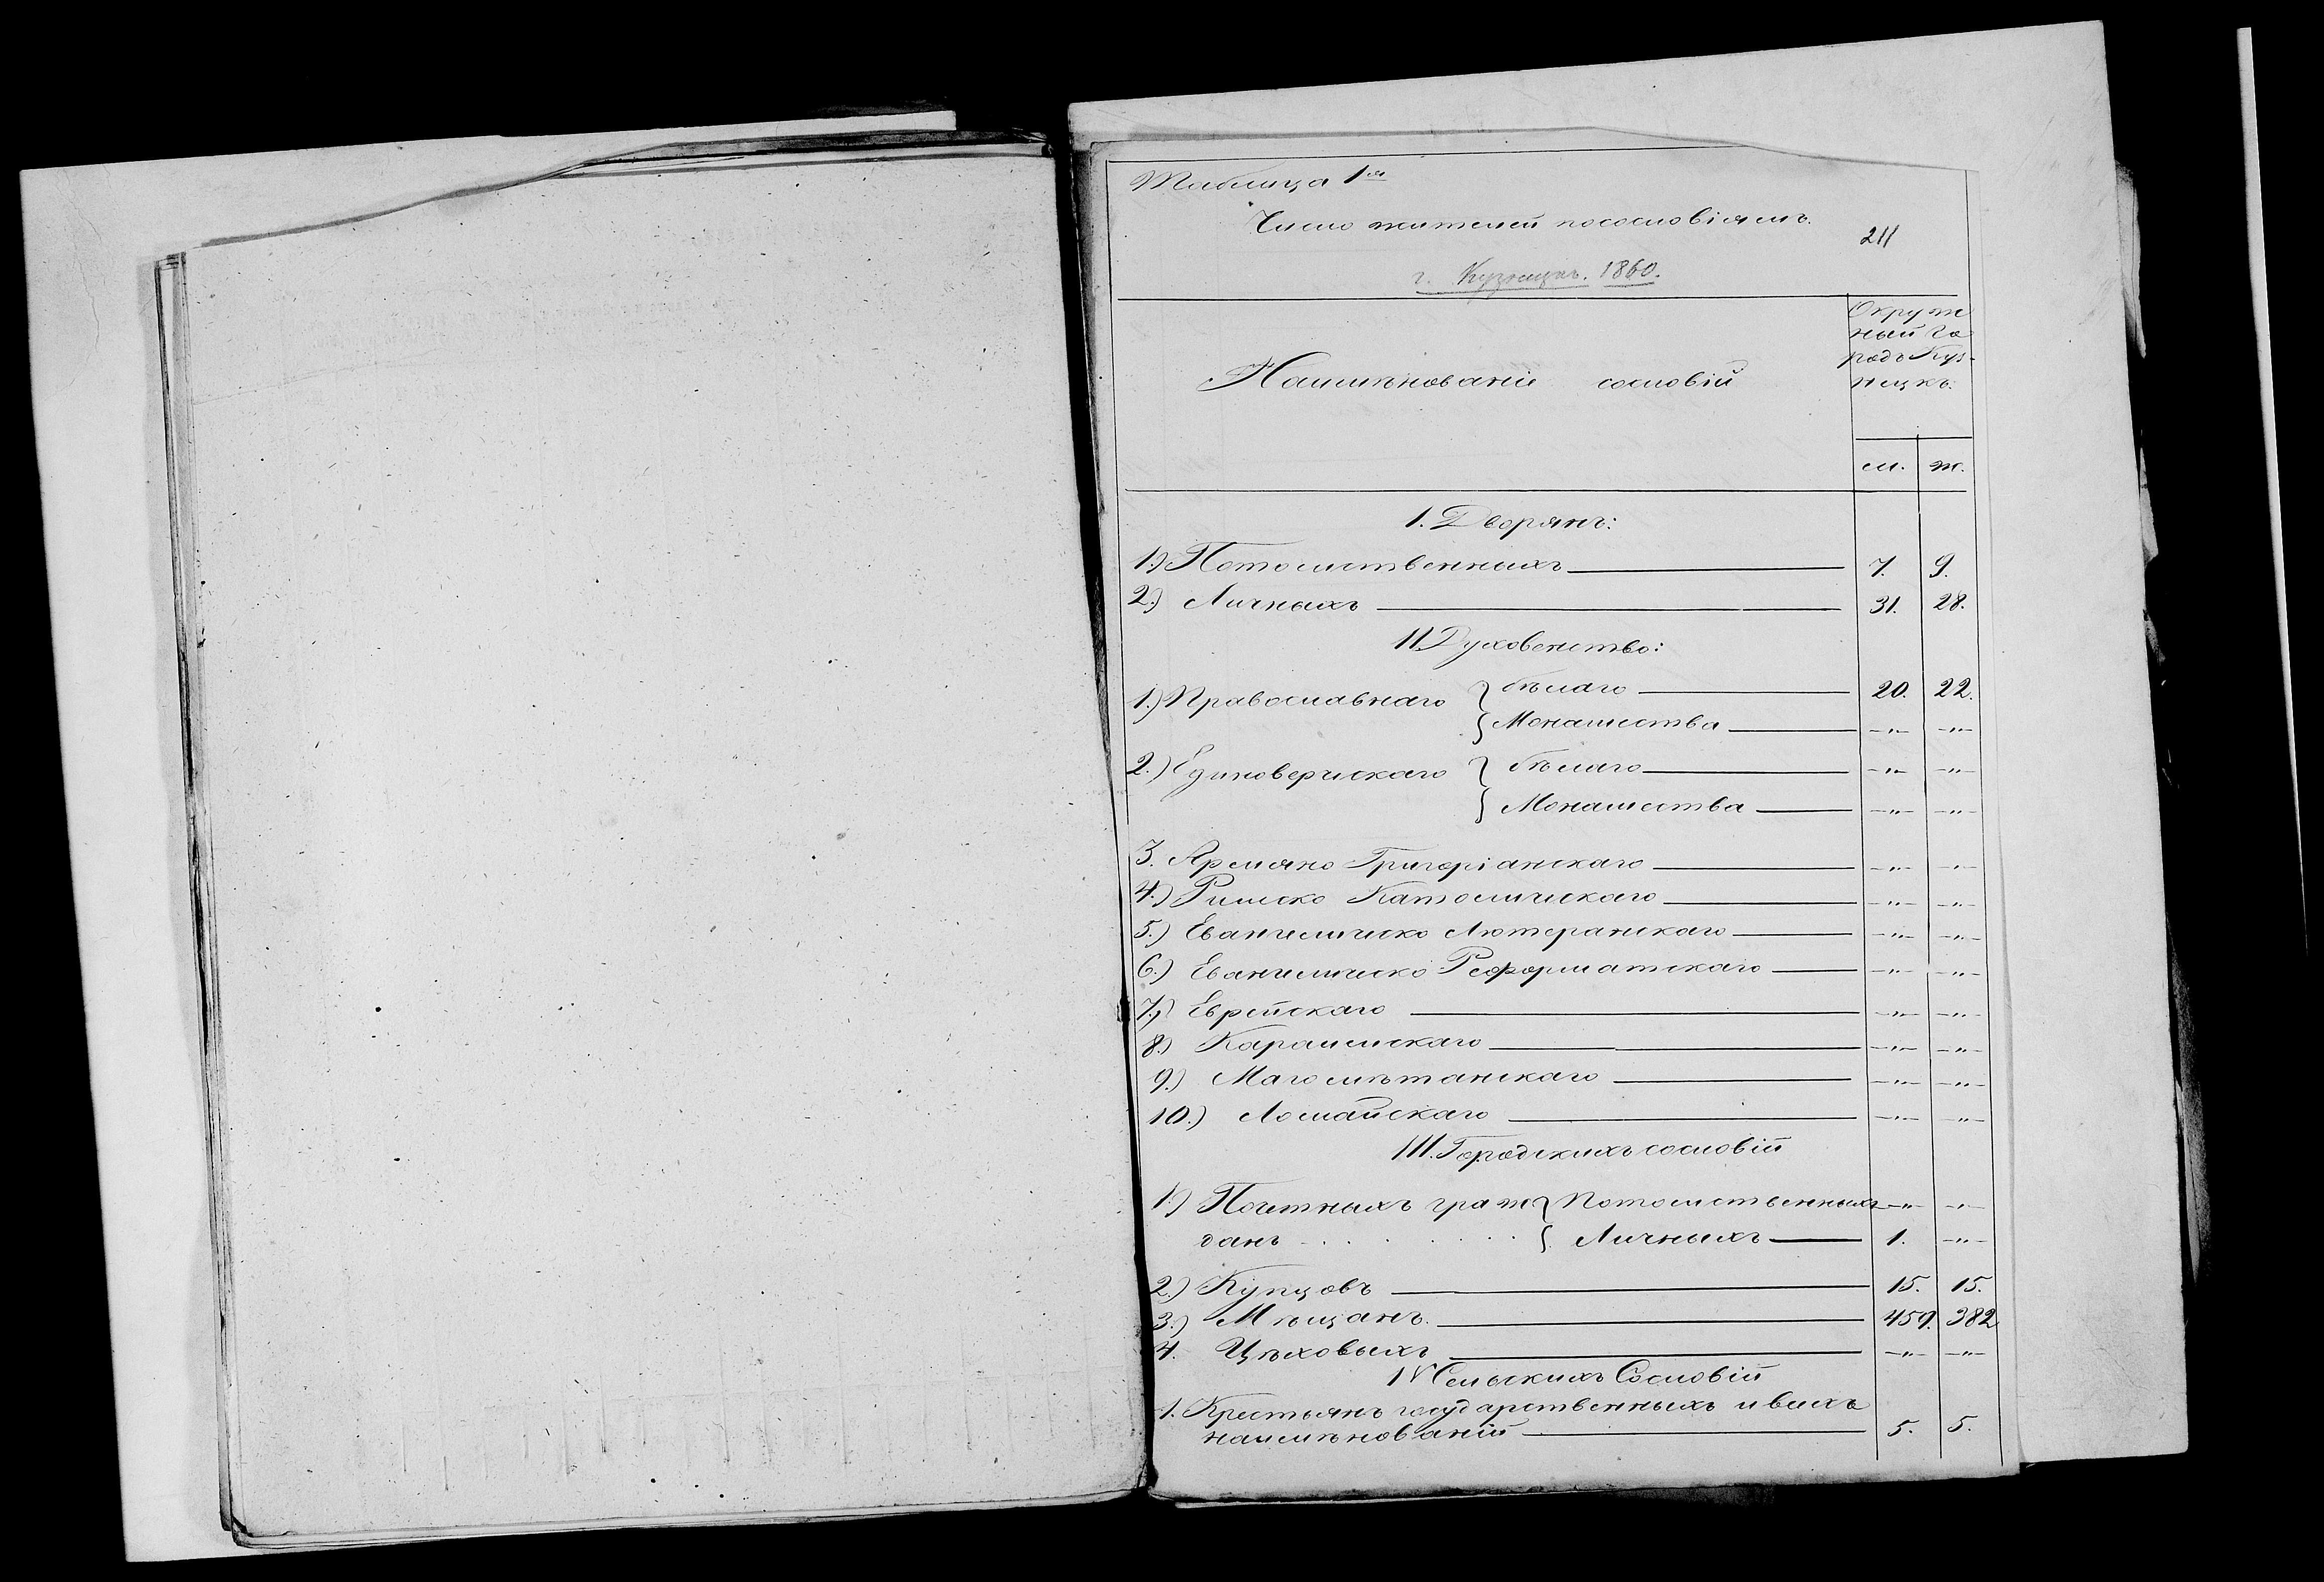 Таблица 1я
Число жителей по сословіямъ.
211
г. Кузнецкъ. 1860.
Наимѣнованіе сословій
Окруж
ный го
родъ Куз-
нецкъ.
м. ж.
I. Дворянъ:
1.) Потомственныхъ 7. 9.
2.) Личныхъ 31. 28.
II. Духовенство:
1.) Православнаго { бѣлаго 20. 22.
{ Монашества -"- -"-
2.) Единоверческаго { бѣлаго -"- -"-
{ Монашества -"- -"-
3. Армяно Григоріанскаго -"- -"-
4.) Римско Католическаго -"- -"-
5.) Евангелическо Лютеранскаго -"- -"-
6.) Евангелическо Реформатскаго -"- -"-
7.) Еврейскаго -"- -"-
8.) Караимскаго -"- -"-
9.) Магомѣтанскаго -"- -"-
10.) Ломайскаго -"- -"-
III. Городскихъ сословій
1.) Почетныхъ граж { Потомственныхъ -"- -"-
данъ . . . . . { Личныхъ 1. -"-
2.) Купцовъ 15. 15.
3.) Мѣщанъ. 459. 382
4. Цѣховыхъ -"- -"-
IV Сельскихъ Сословій
1. Крестьянъ государственныхъ и всѣхъ
наимѣнованій 5. 5.